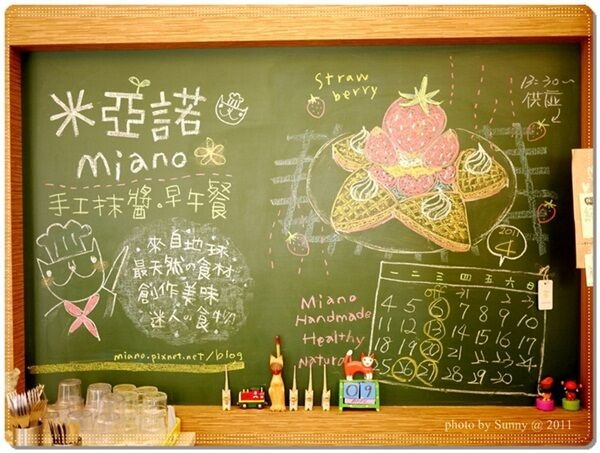 米亞諾
miano
手工抹醬。早午餐
來自地球
最天然の食材
創作美味
迷人の食物
miano.pixnet.net/blog
Straw
berry
13:30~
供應
2011
4
Miano
Handmade
Healthy
Natural
一 二 三 四 五 六 日
off 1 2 3
4 5 6 7 8 9 10
11 12 13 14 15 16 17
18 19 20 21 22 23 24
25 26 27 28 29 30
09
photo by Sunny @ 2011